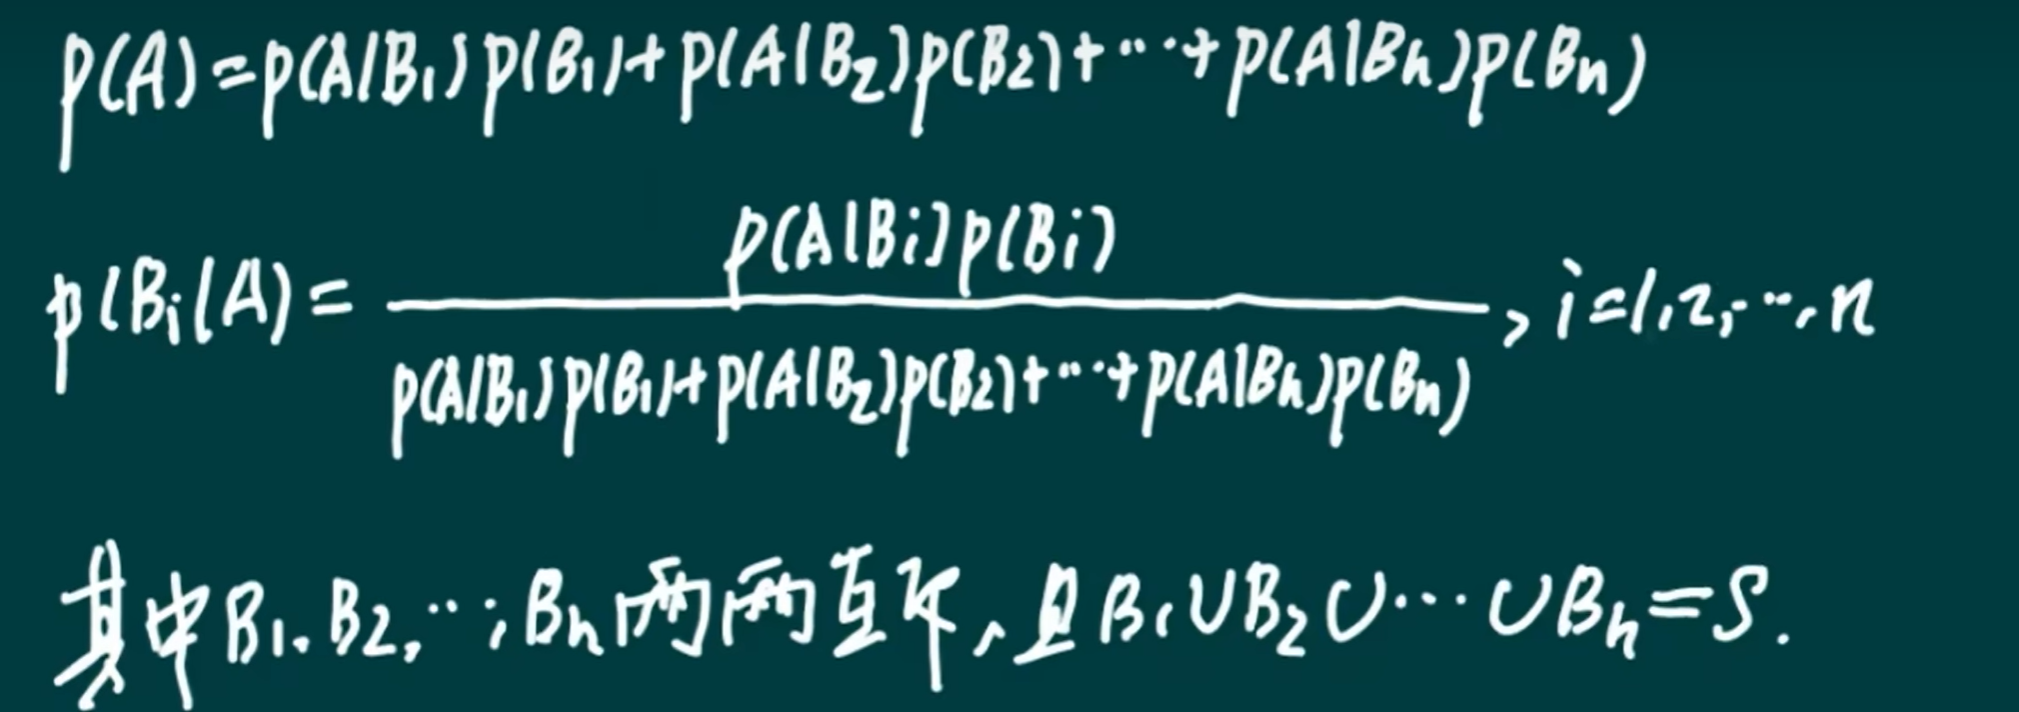 p(A)=p(A|B₁)p(B₁)+p(A|B₂)p(B₂)+⋯+p(A|Bₙ)p(Bₙ)
p(Bᵢ|A)=
p(A|Bᵢ)p(Bᵢ)
p(A|B₁)p(B₁)+p(A|B₂)p(B₂)+⋯+p(A|Bₙ)p(Bₙ)
, i=1,2,⋯,n
其中B₁,B₂,⋯,Bₙ两两互斥,且B₁∪B₂∪⋯∪Bₙ=S.